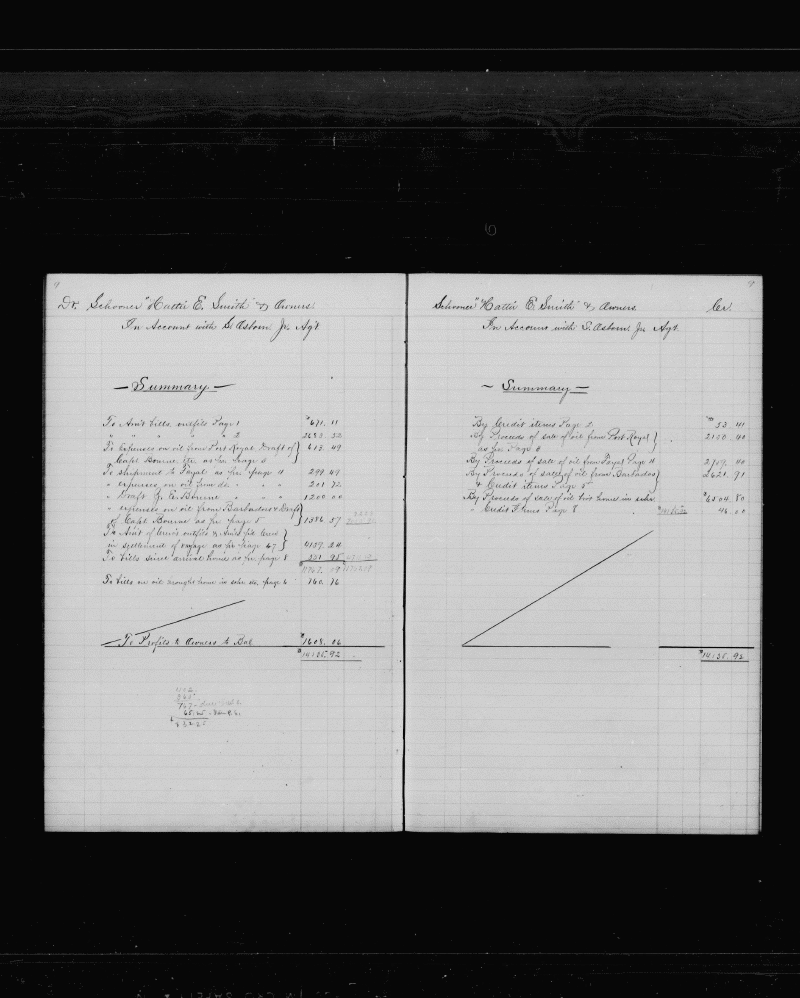 9
Dr. Schooner "Hattie E. Smith" & Owners.
In Account with S. Osborn Jr. Agt.
Summary
To Am't bills, outfits Page 1 $671. 11
" " " " " 2
To expenses on oil from Port Royal Draft of } 613 49
Capt Bourne, etc. as per page 3
To shipment to Fayal as per page 4 298 49
" expenses on oil from do " " 201 72
" Draft fr E. Bourne " " " 1200 00
" expenses on oil from Barbados & Draft }
of Capt Bourne as per page 5 1386 57
in settlement of voyage as per page 67 } 4139. 24
To bills since arrival home as per page 8
To bills on oil brought home in schr &c. page 6 760. 76
To Profits to Owners to Bal $1608. 06
$14135. 92
9
Schooner "Hattie E. Smith" & Owners. Cr.
In Account with S. Osborn Jr. Agt.
Summary
By Credit items Page 2 $53. 41
By Proceeds of sale of oil from Port Royal } 2150. 40
as per Page 3
By Proceeds of sale of oil from Fayal Page 4 2759. 40
By Proceeds of sale of oil from Barbados } 2621. 91
& Credit items Page 5
By Proceeds of sale of oil bro home in schr. $6504. 80
" Credit Items Page 8 46. 00
$14135. 92